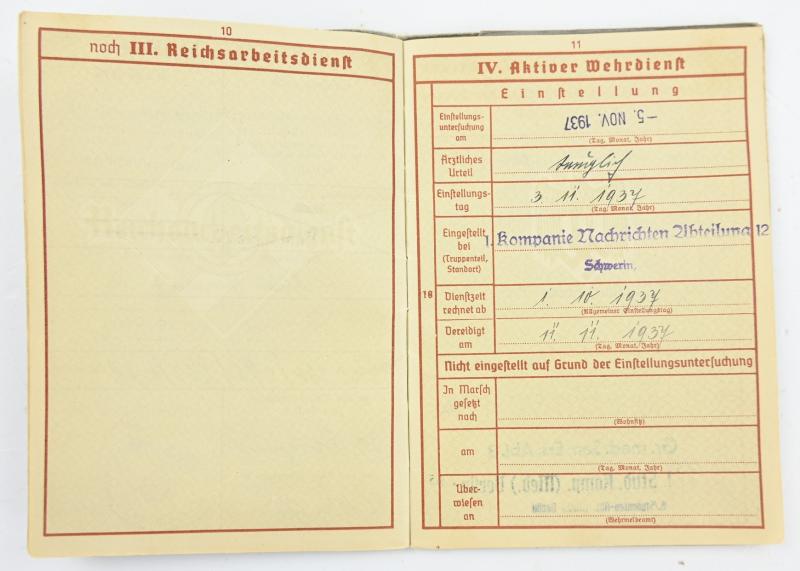 10
noch III. Reichsarbeitsdienst
11
IV. Aktiver Wehrdienst
Einstellung
Einstellungs-
untersuchung
am
–5. NOV. 1937
(Tag, Monat, Jahr)
Ärztliches
Urteil
tauglich
Einstellungs-
tag
3. 11. 1937
(Tag, Monat, Jahr)
Eingestellt
bei
(Truppenteil,
Standort)
1. Kompanie Nachrichten Abteilung 12
Schwerin,
18
Dienstzeit
rechnet ab
1. 10. 1937
(Allgemeiner Einstellungstag)
Vereidigt
am
11. 11. 1937
(Tag, Monat, Jahr)
Nicht eingestellt auf Grund der Einstellungsuntersuchung
In Marsch
gesetzt
nach
(Wohnsitz)
am
(Tag, Monat, Jahr)
Über-
wiesen
an
(Wehrmeldeamt)